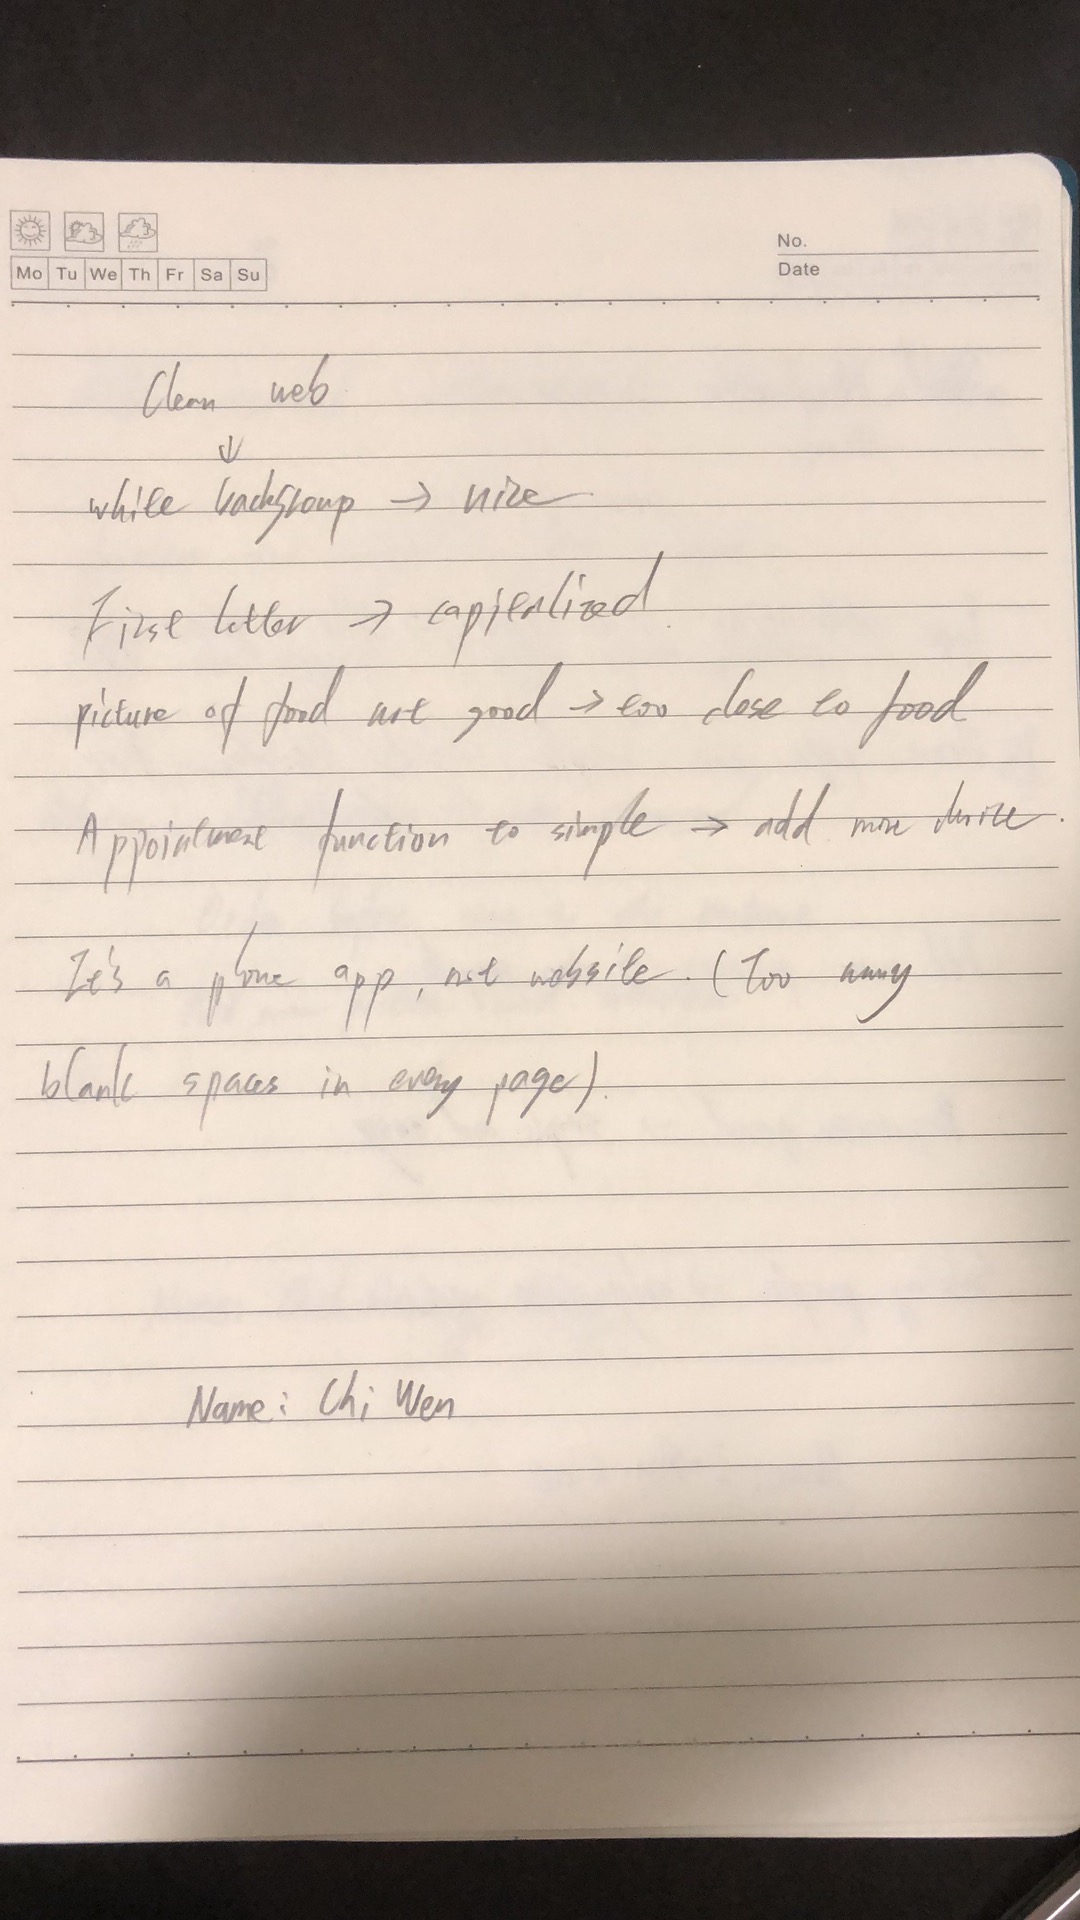 No.
Date
Mo Tu We Th Fr Sa Su
Clean web
↓
white backgroup → nice
First letter → capientlized.
picture of food not good → too close to food
Appointment function to simple → add more
It's a phone app, not website. (Too many
blank spaces in every page).
Name: Chi Wen